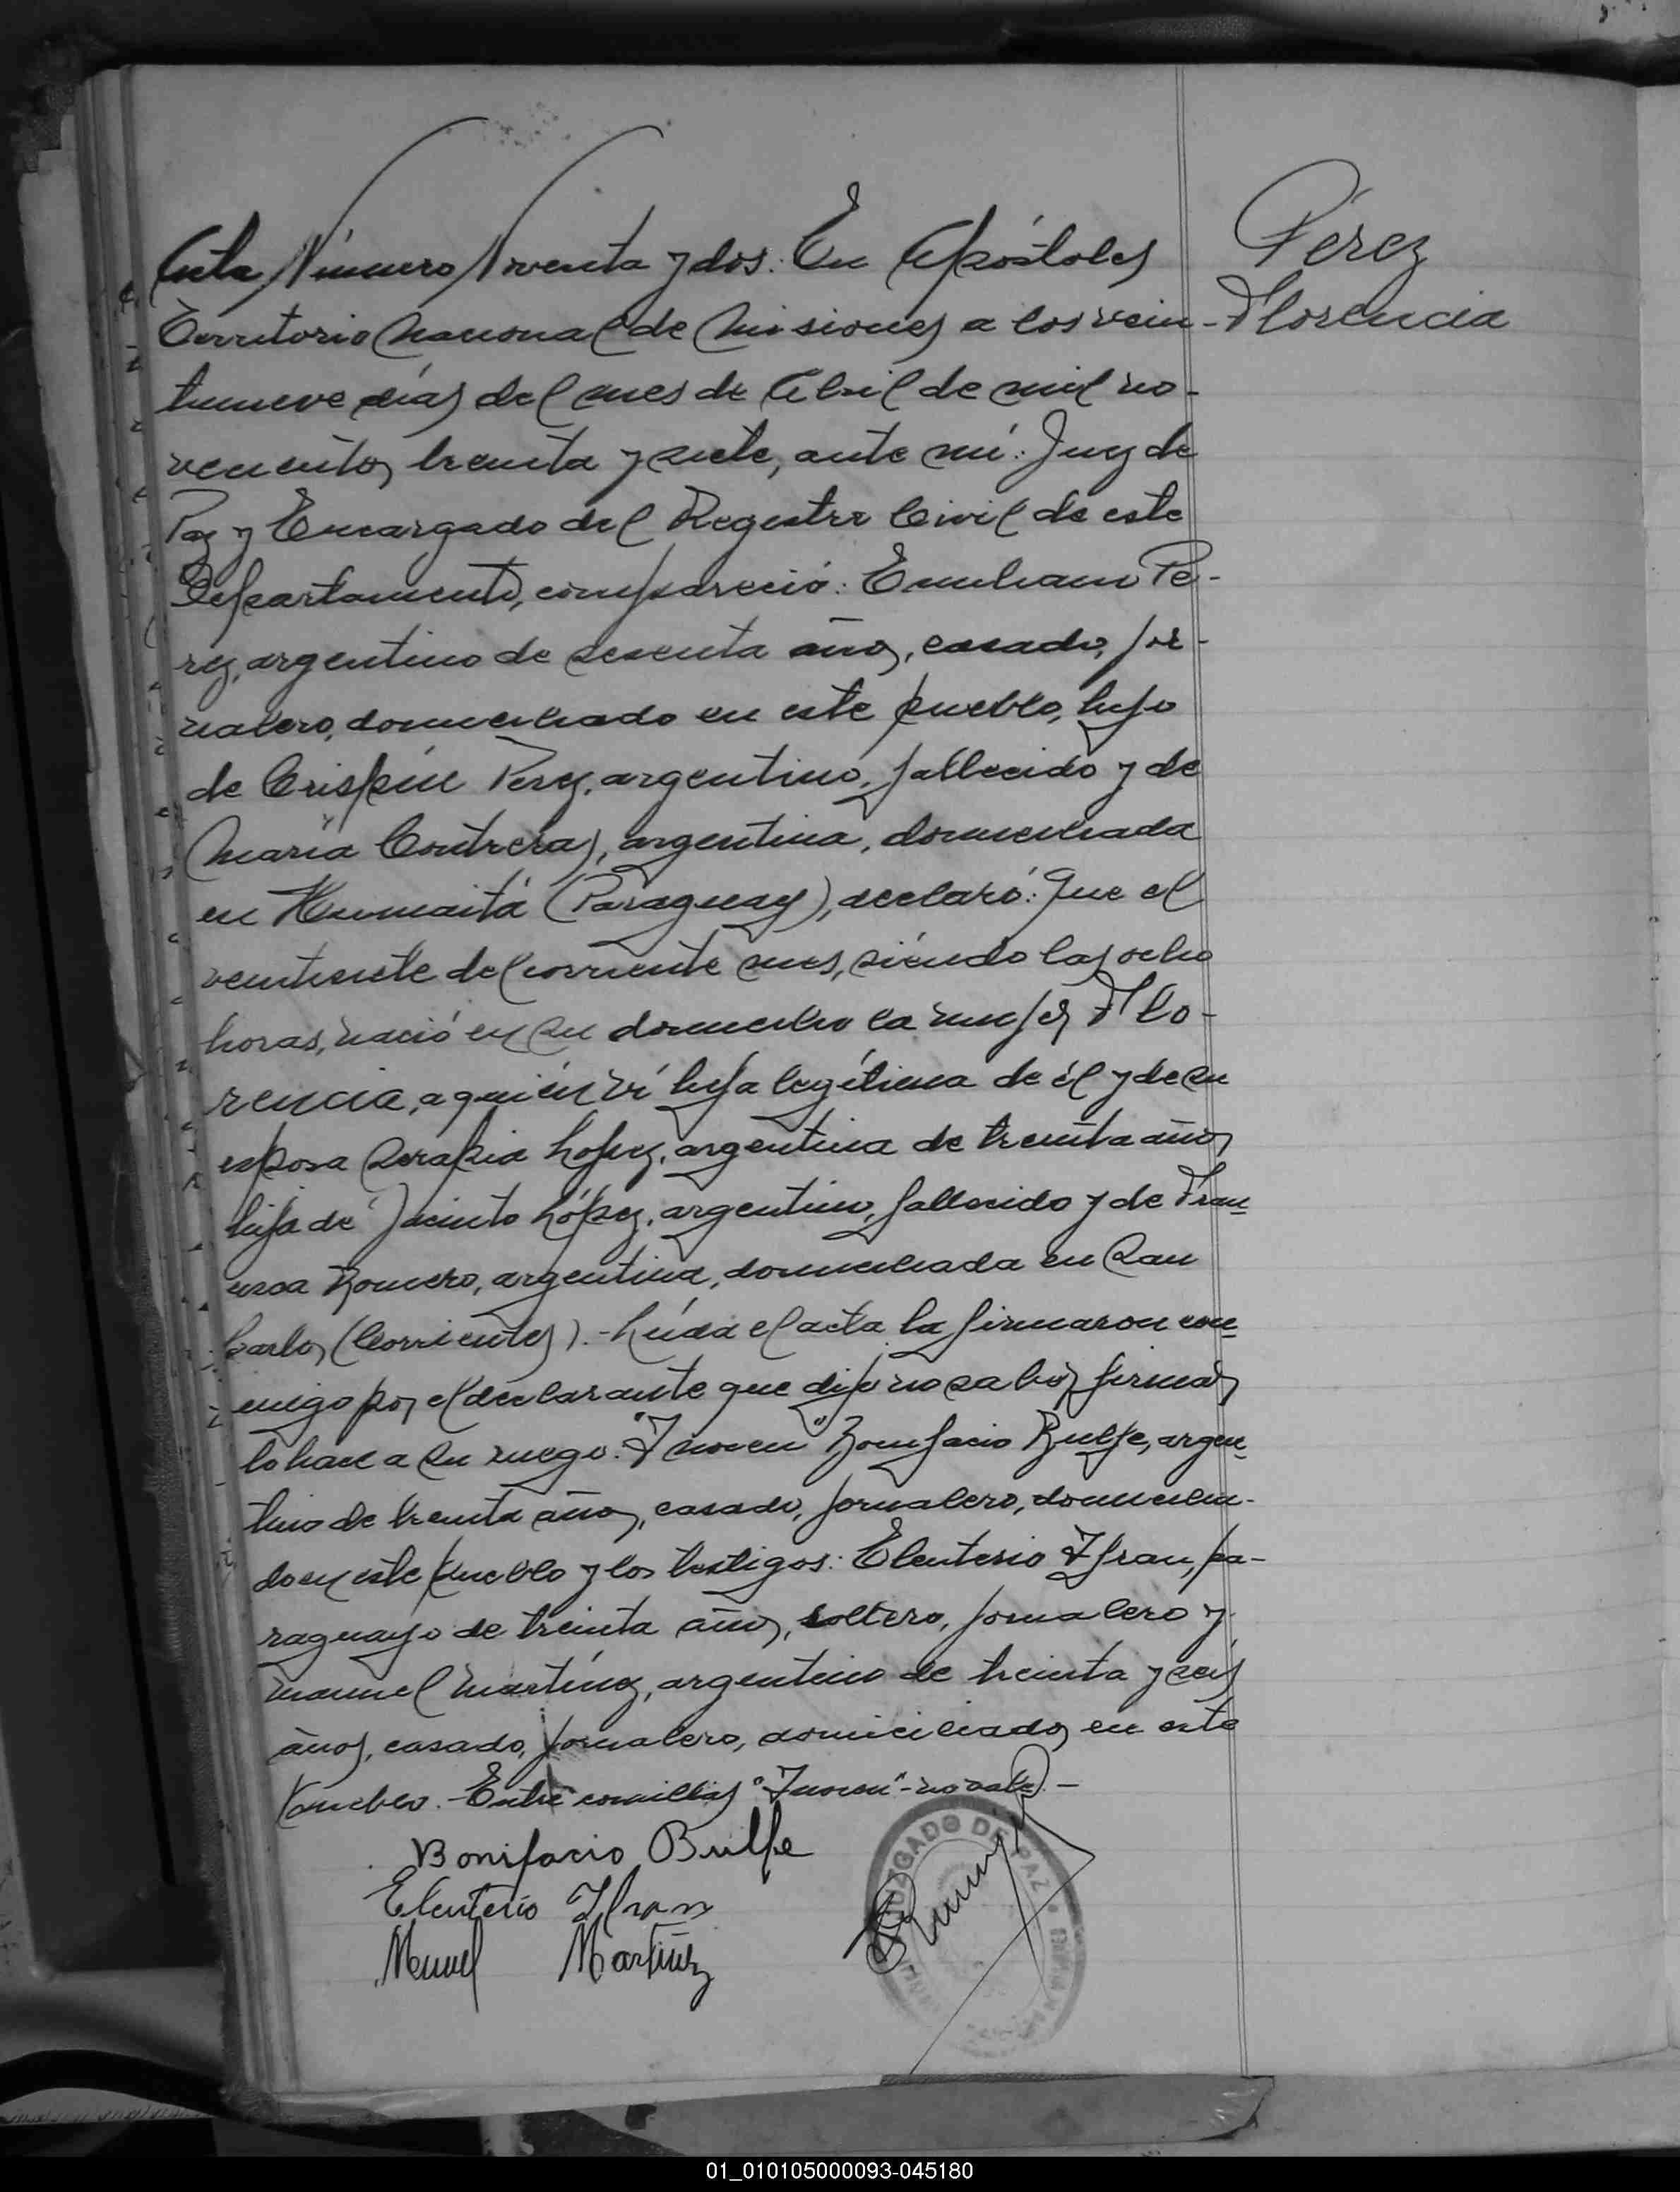 Acta Número Noventa y dos: En Apóstoles
Pérez
Territorio Nacional de Misiones a los vein-
Florencia
tinueve días del mes de Abril de mil no-
vecientos treinta y siete, ante mí: Juez de
Paz y Encargado del Registro Civil de este
Departamento, compareció: Emiliano Pe-
rez, argentino de sesenta años, casado, jor-
nalero, domiciliado en este pueblo, hijo
de Crispín Perez, argentino, fallecido y de
María Contreras, argentina, domiciliada
en Humaitá (Paraguay), declaró: Que el
veintisiete del corriente mes, siéndo las ocho
horas, nació en su domicilio la mujer Flo-
rencia, a quién ví hija legítima de él y de su
esposa Serapia Lopez, argentina de treinta años
hija de Jacinto López, argentino, fallecido y de Fran
cisca Romero, argentina, domiciliada en San
Carlos (Corrientes).- Leída el acta la firmaron con
migo por el declarante que dijo no saber firmar
lo hace a su ruego: " " Bonifacio Bulfe, argen
tino de treinta años, casado, jornalero, domicilia-
do en este pueblo y los testigos: Eleuterio Ifran, pa-
raguayo de treinta años, soltero, jornalero y
Manuel Martínez, argentino de treinta y seis
años, casado, jornalero, domiciliados en este
pueblo.- Entre comillas " "- no vale.-
Bonifacio Bulfe
Eleuterio Ifran
Manuel Martínez
JUZGADO DE PAZ
01_010105000093-045180